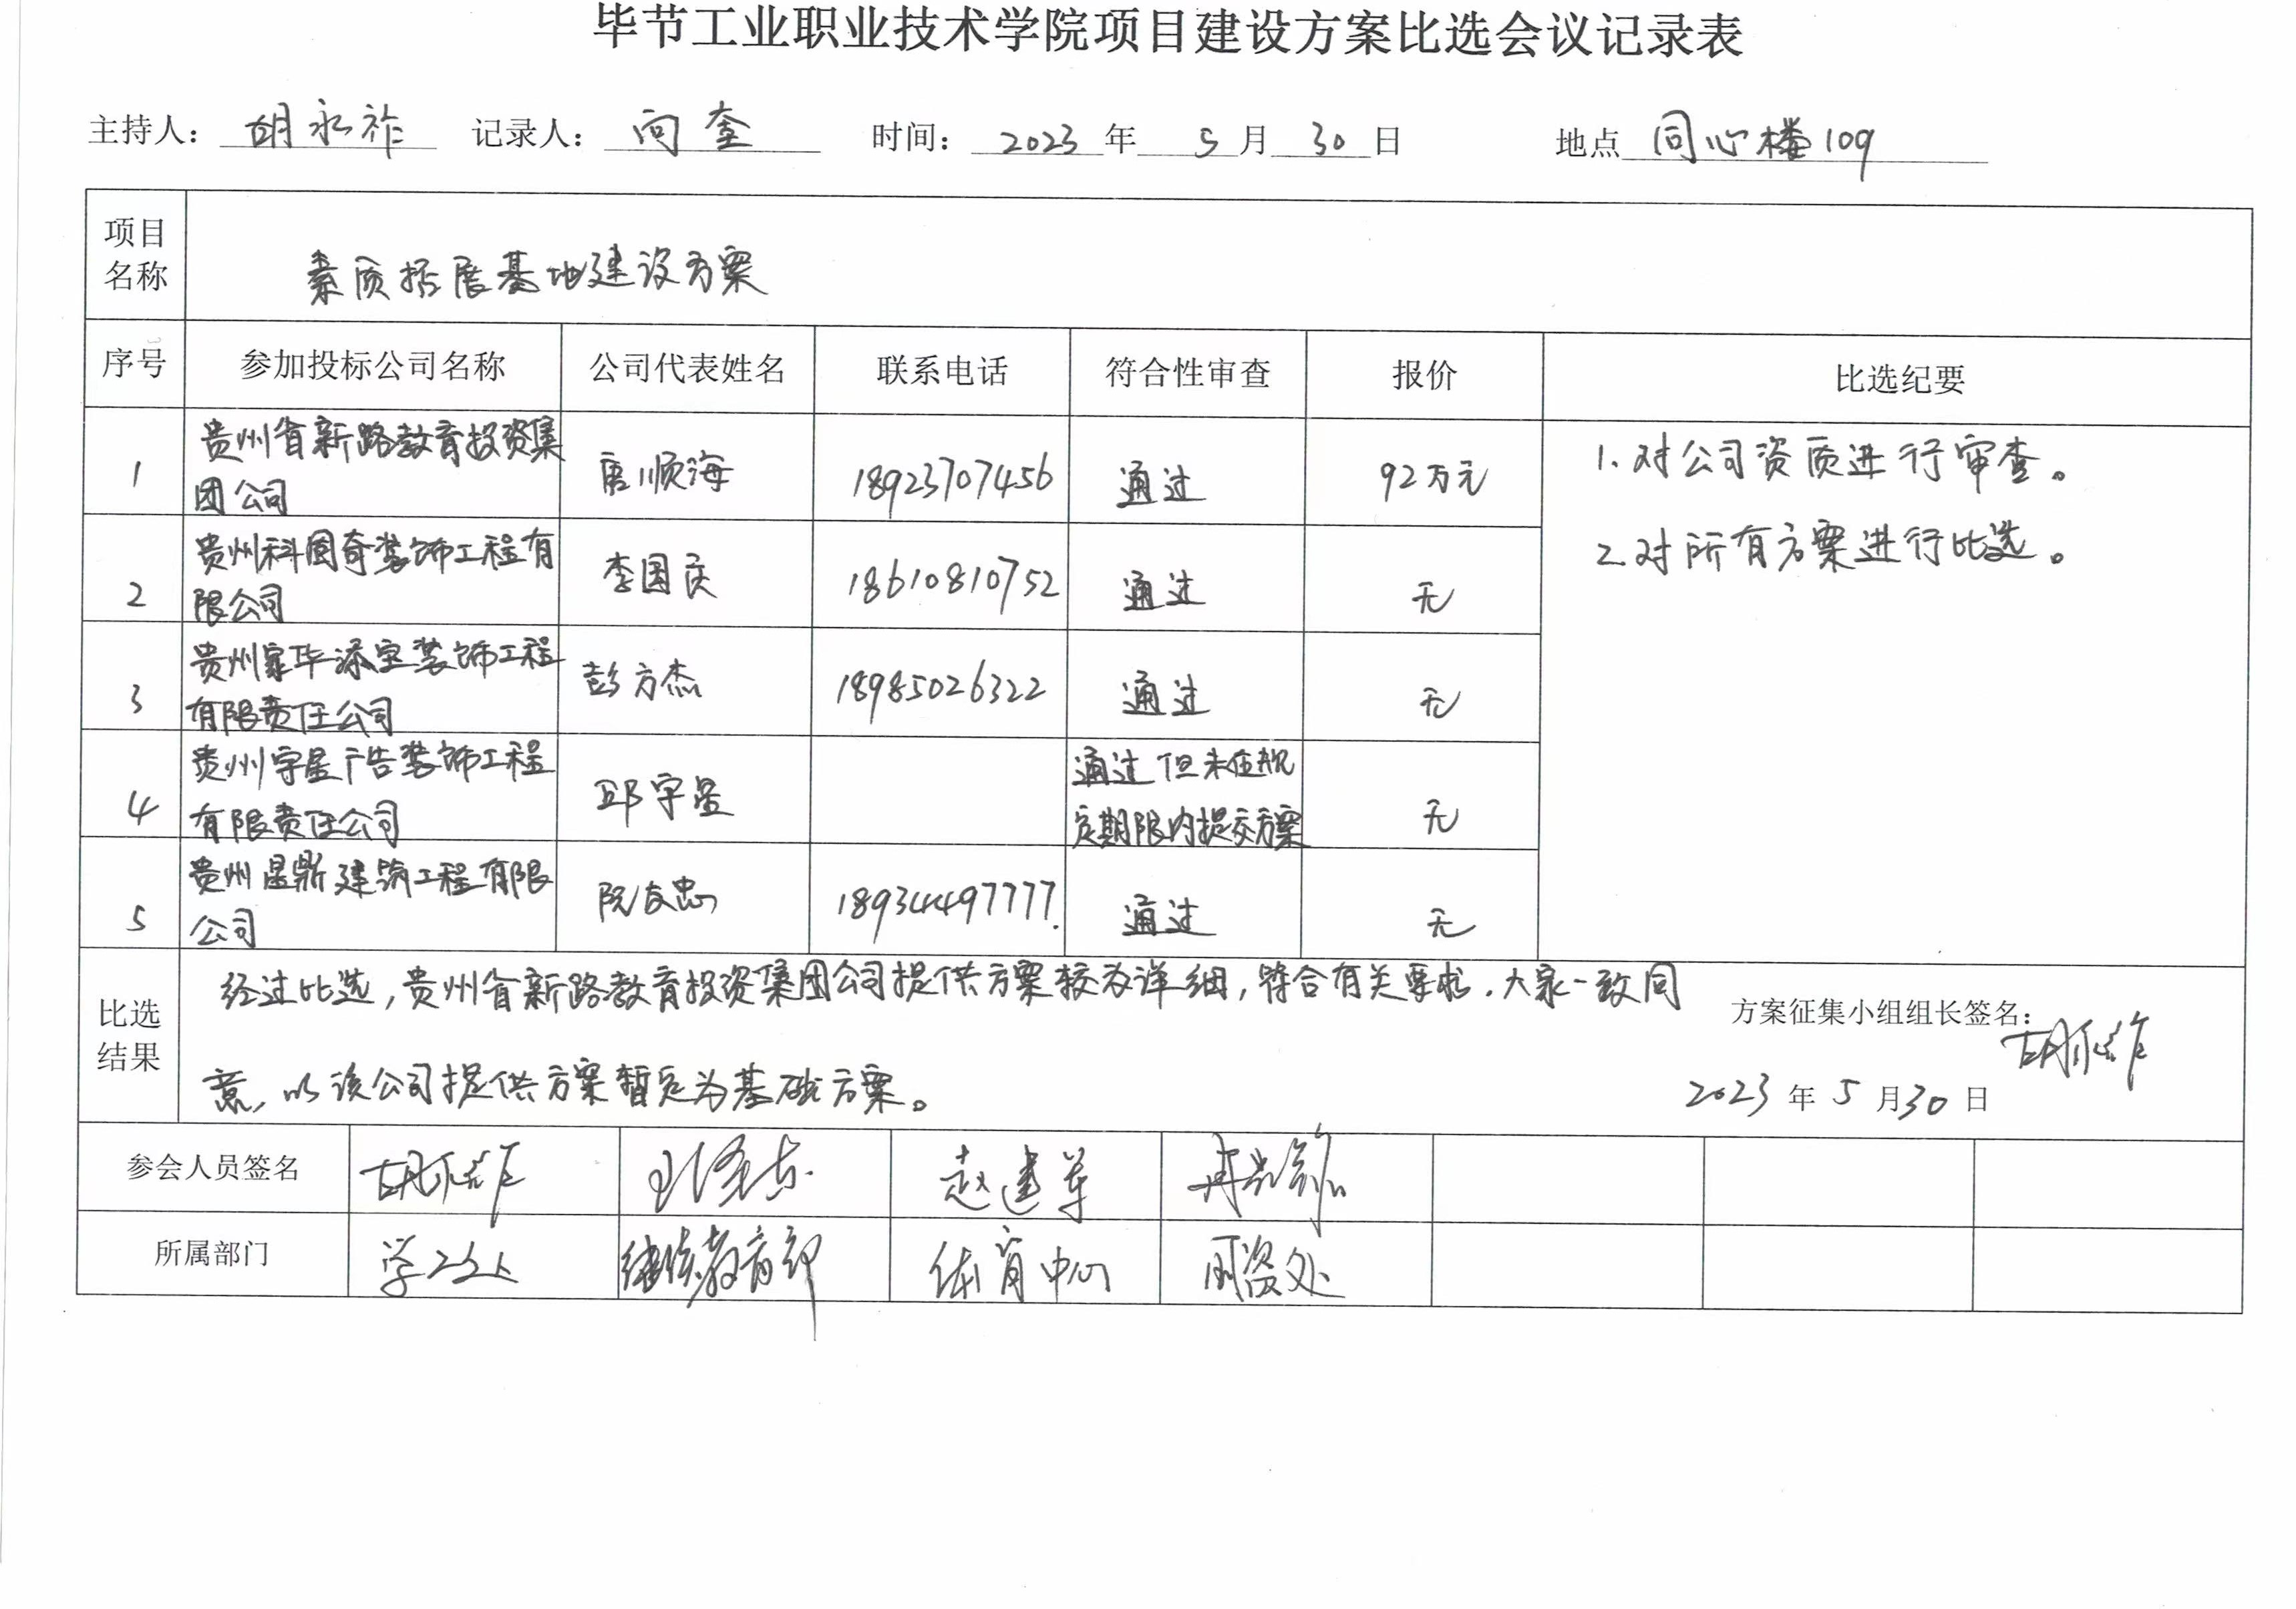 毕节工业职业技术学院项目建设方案比选会议记录表
主持人： 胡永祚 记录人： 向奎 时间： 2023 年 5 月 30 日 地点 同心楼109
项目名称 素质拓展基地建设方案
序号 参加投标公司名称 公司代表姓名 联系电话 符合性审查 报价 比选纪要
1 贵州省新路教育投资集团公司 唐顺海 18923707456 通过 92万元
1.对公司资质进行审查。
2.对所有方案进行比选。
2 贵州科图奇装饰工程有限公司 李国庆 18610810752 通过 无
3 贵州家华添宝装饰工程有限责任公司 彭方杰 18985026322 通过 无
4 贵州宇星广告装饰工程有限责任公司 邱宇星 通过但未在规定期限内提交方案 无
5 贵州昆鼎建筑工程有限公司 阮友忠 18934497777. 通过 无
比选结果 经过比选，贵州省新路教育投资集团公司提供方案较为详细，符合有关要求，大家一致同
意，以该公司提供方案暂定为基础方案。
方案征集小组组长签名： 胡永祚
2023 年 5 月 30 日
参会人员签名 胡永祚 赵建军
所属部门 学工部 继续教育部 体育中心 国资处